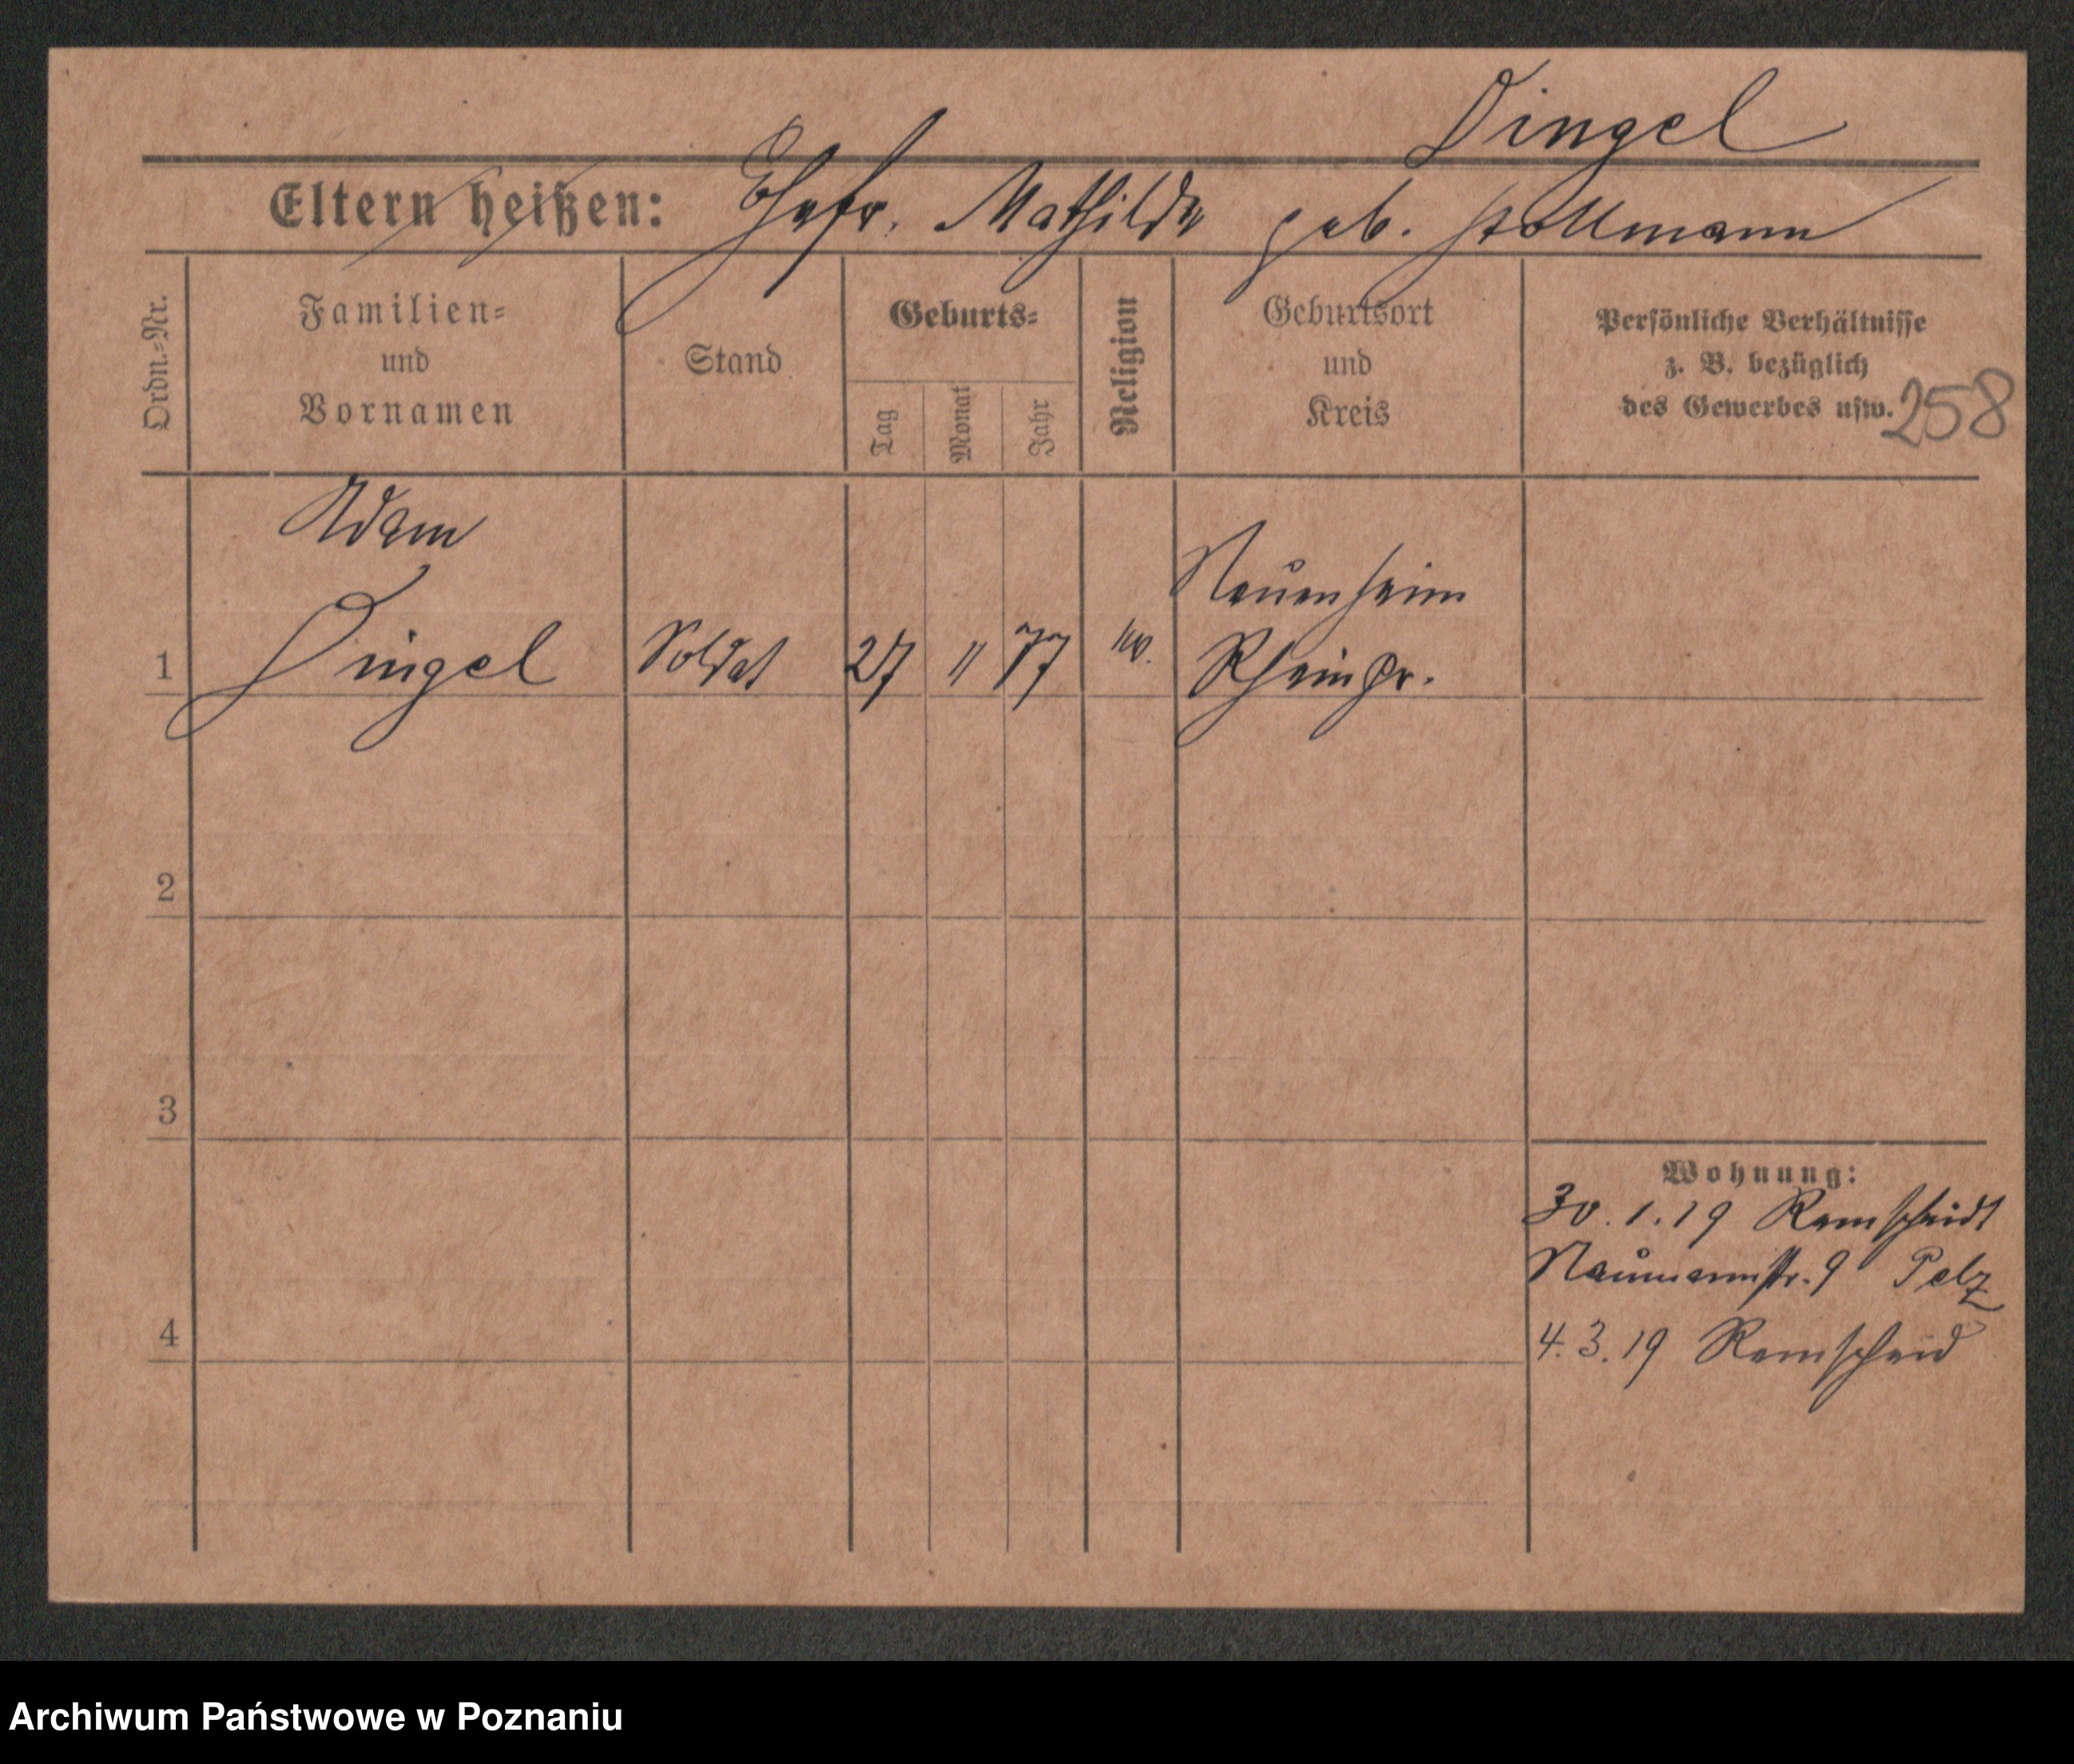 Dingel
Eltern heißen: Ehefr. Mathilde geb. Stollmann
Ordn.-Nr.
Familien-
und
Vornamen
Stand
Geburts-
Tag
Monat
Jahr
Religion
Geburtsort
und
Kreis
Persönliche Verhältnisse
z. B. bezüglich
des Gewerbes usw.
258
Adam
Neuenheim
1 Dingel Soldat 27 11 77 ev. Rheinpr.
2
3
Wohnung:
30.1.19 Remscheidt
Naumannstr. 9 Pelz
4
4.3.19 Remscheid
Archiwum Państwowe w Poznaniu